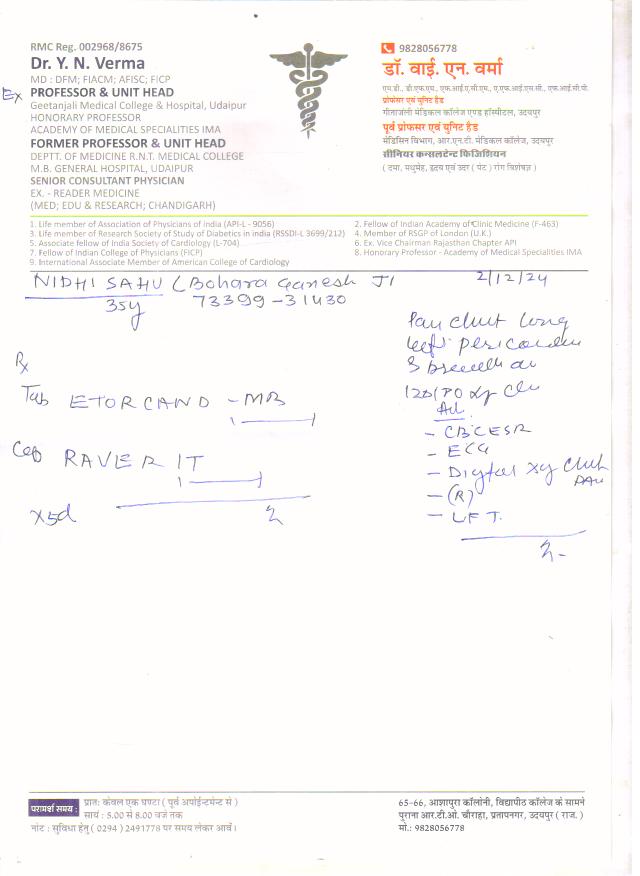 RMC Reg. 002968/8675
Dr. Y. N. Verma
MD : DFM; FIACM; AFISC; FICP
Ex PROFESSOR & UNIT HEAD
Geetanjali Medical College & Hospital, Udaipur
HONORARY PROFESSOR
ACADEMY OF MEDICAL SPECIALITIES IMA
FORMER PROFESSOR & UNIT HEAD
DEPTT. OF MEDICINE R.N.T. MEDICAL COLLEGE
M.B. GENERAL HOSPITAL, UDAIPUR
SENIOR CONSULTANT PHYSICIAN
EX. - READER MEDICINE
(MED; EDU & RESEARCH; CHANDIGARH)
9828056778
डॉ. वाई. एन. वर्मा
एम.डी., डी.एफ.एम., एफ.आई.ए.सी.एम., ए.एफ.आई.एस.सी., एफ.आई.सी.पी.
प्रोफेसर एवं यूनिट हैड
गीतांजली मेडिकल कॉलेज एण्ड हॉस्पिटल, उदयपुर
पूर्व प्रोफेसर एवं यूनिट हैड
मेडिसिन विभाग, आर.एन.टी. मेडिकल कॉलेज, उदयपुर
सीनियर कन्सलटेन्ट फिजिशियन
( दमा, मधुमेह, हृदय एवं उदर ( पेट ) रोग विशेषज्ञ )
1. Life member of Association of Physicians of India (API-L - 9056)
2. Fellow of Indian Academy of Clinic Medicine (F-463)
3. Life member of Research Society of Study of Diabetics in india (RSSDI-L 3699/212)
4. Member of RSGP of London (U.K.)
5. Associate fellow of India Society of Cardiology (L-704)
6. Ex. Vice Chairman Rajasthan Chapter API
7. Fellow of Indian College of Physicians (FICP)
8. Honorary Professor - Academy of Medical Specialities IMA
9. International Associate Member of American College of Cardiology
NIDHI SAHU (Bohara Ganesh JI 2/12/24
35y 73399-31430
long
left
Rx
Tab ETORCAND - MR
1 1
Cap RAVIER IT
1 1
X5d
2
Ad
- CBC ESR
- ECG
- Digital Xy Chest PAV
- (R)
- LFT.
परामर्श समय :
प्रात: केवल एक घण्टा ( पूर्व अपोईन्टमेन्ट से )
सायं : 5.00 से 8.00 बजे तक
नोट : सुविधा हेतु ( 0294 ) 2491778 पर समय लेकर आवें।
65-66, आशापुरा कॉलोनी, विद्यापीठ कॉलेज के सामने
पुराना आर.टी.ओ. चौराहा, प्रतापनगर, उदयपुर ( राज. )
मो.: 9828056778